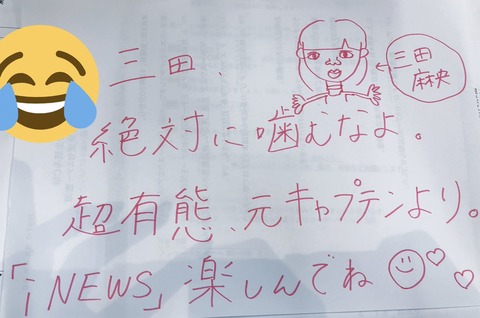 三田、
三田
麻央
絶対に噛むなよ。
超有態、元キャプテンより。
「iNEWS」楽しんでね